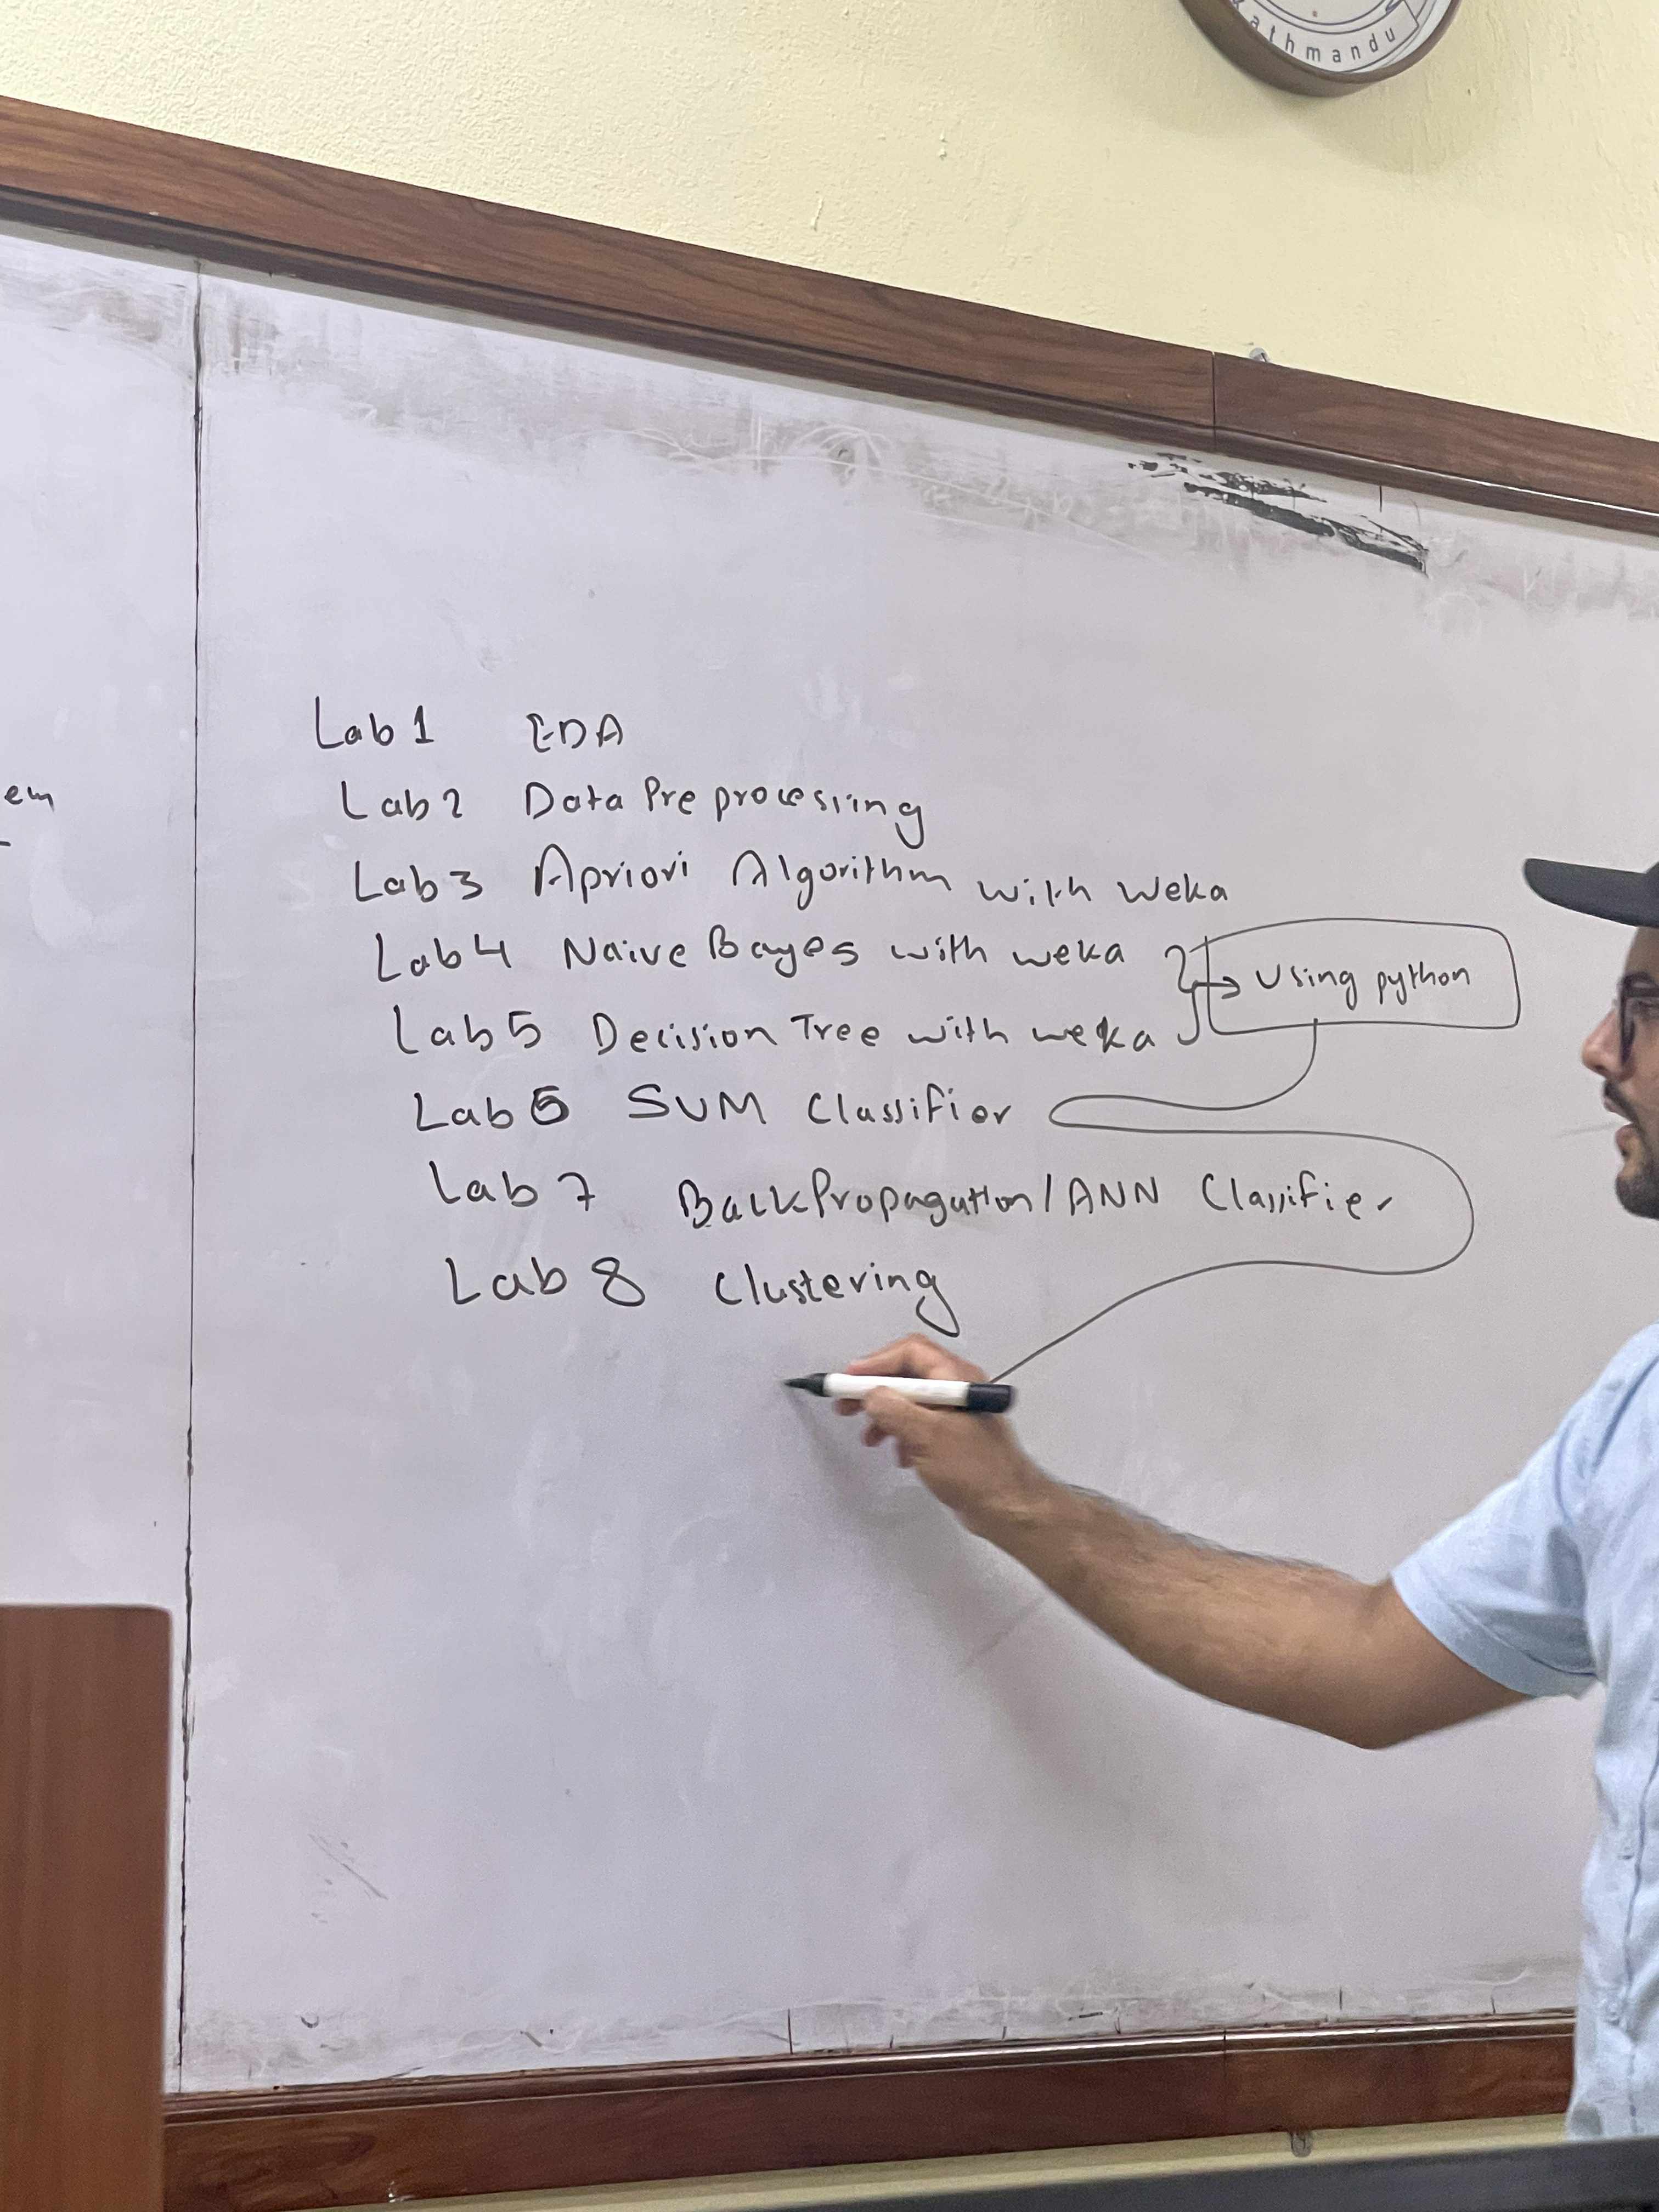 athmandu
em
Lab 1 EDA
Lab 2 Data Preprocessing
Lab 3 Apriori Algorithm with Weka
Lab 4 Naive Bayes with weka
→ Using python
Lab 5 Decision Tree with weka
Lab 6 SVM Classifier
Lab 7 BackPropagation/ANN Classifier
Lab 8 Clustering